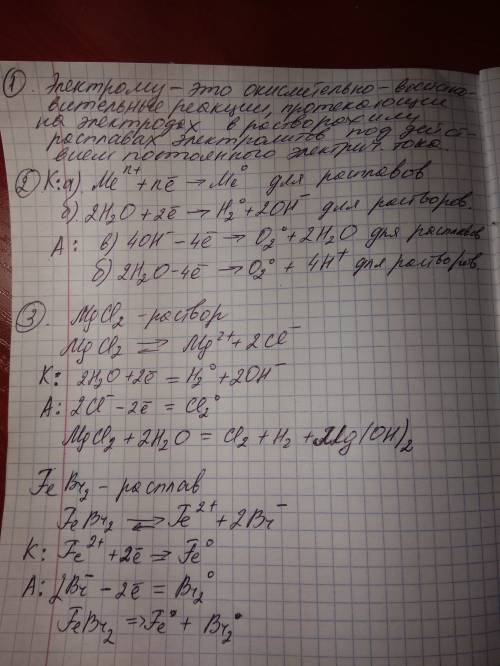 ① Электролиз – это окислительно-восстано-
вительные реакции, протекающие
на электродах в растворах или
расплавах электролитов под дейст-
вием постоянного электрич. тока.
② К: а) Me^n+ + nē → Me° для расплавов
б) 2H₂O + 2ē → H₂° + 2OH⁻ для растворов.
А: в) 4OH⁻ – 4ē → O₂° + 2H₂O для расплавов
б) 2H₂O – 4ē → O₂° + 4H⁺ для растворов.
③. MgCl₂ – раствор
MgCl₂ ⇄ Mg²⁺ + 2Cl⁻
К: 2H₂O + 2ē = H₂° + 2OH⁻
А: 2Cl⁻ – 2ē = Cl₂°
MgCl₂ + 2H₂O = Cl₂ + H₂ + Mg(OH)₂
FeBr₂ – расплав
FeBr₂ ⇄ Fe²⁺ + 2Br⁻
К: Fe²⁺ + 2ē ⇒ Fe°
А: 2Br⁻ – 2ē = Br₂°
FeBr₂ ⇒ Fe° + Br₂°